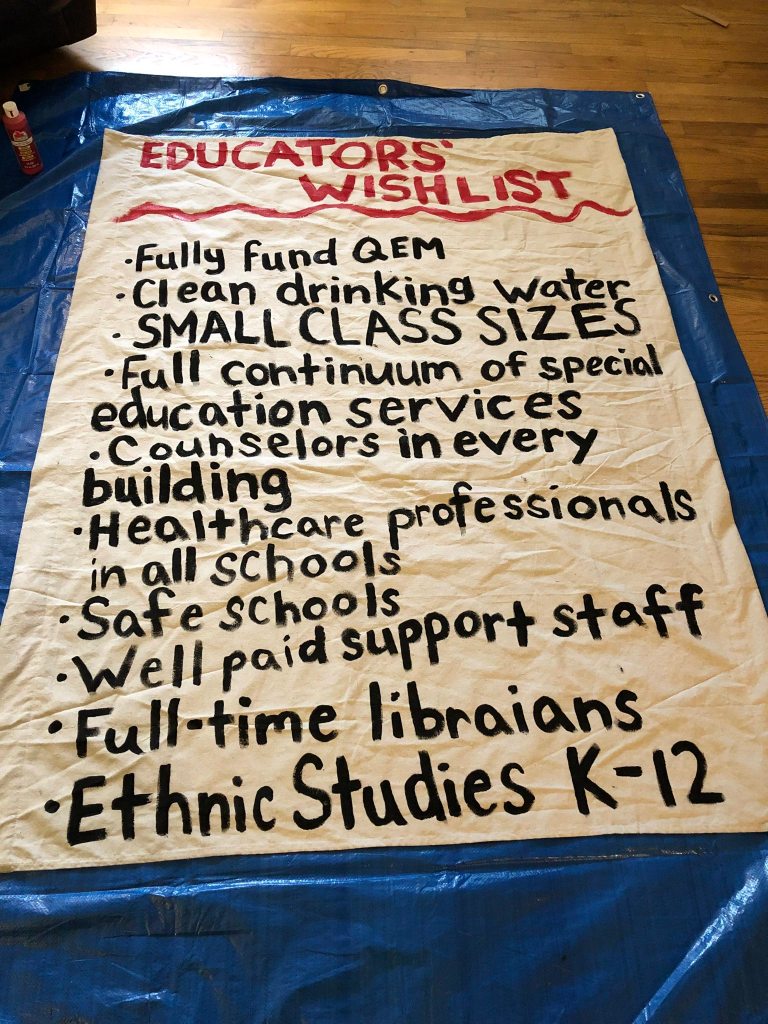 EDUCATORS'
WISHLIST
·Fully fund QEM
·Clean drinking water
·SMALL CLASS SIZES
·Full continuum of special
education services
·Counselors in every
building
·Healthcare professionals
in all schools
·Safe schools
·Well paid support staff
·Full-time libraians
·Ethnic Studies K-12